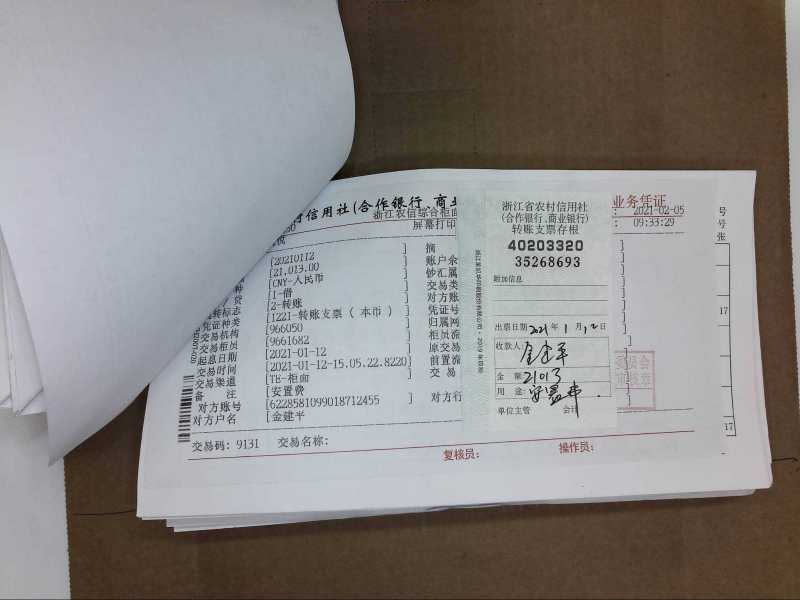 村信用社(合作银行、商业
业务凭证
浙江农信综合柜面
2021-02-05
屏幕打印
09:33:29
号
号
张
[20210112] 摘
[21,013.00 账户余
[CNY-人民币 钞汇属
[1-借 交易类
[2-转账 对方账
转标志 [1221-转账支票(本币)] 凭证号
凭证种类 [966050 归属网
交易机构 [9661682 柜员流
交易柜员 [2021-01-12 原交易
起息日期 [2021-01-12-15.05.22.8220] 前置流
交易时间 [TE-柜面 交易
交易渠道 [安置费
备 注 [6228581099018712455 ] 对方行
对方账号 [金建平
对方户名
交易码: 9131 交易名称:
复核员: 操作员:
17
17
浙江省农村信用社
(合作银行、商业银行)
转账支票存根
40203320
35268693
附加信息
出票日期 2021年 1月12日
收款人: 金建平
金 额: 21013
用 途: 安置费
单位主管 会计